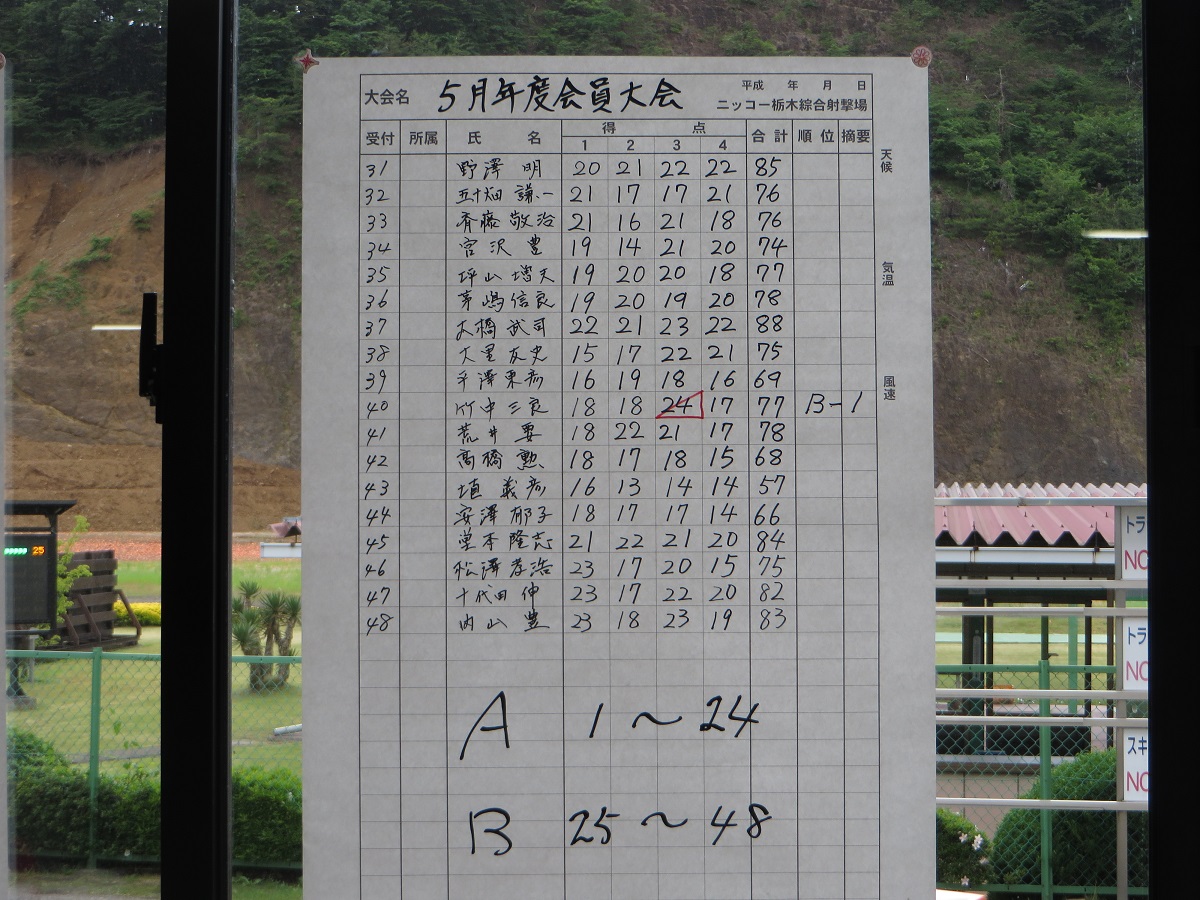 大会名 5月年度会員大会 平成 年 月 日
ニッコー栃木綜合射撃場
受付 所属 氏 名 得 点 合計 順位 摘要
1 2 3 4
天候
31 野澤 明 20 21 22 22 85
32 五十畑 謙一 21 17 17 21 76
33 斉藤 敬治 21 16 21 18 76
34 宮沢 豊 19 14 21 20 74
気温
35 坪山 増夫 19 20 20 18 77
36 茅嶋 信良 19 20 19 20 78
37 大橋 武司 22 21 23 22 88
38 大 友史 15 17 22 21 75
風速
39 平澤 東彦 16 19 18 16 69
40 竹中 三良 18 18 24 17 77 B-1
41 荒井 要 18 22 21 17 78
42 高橋 勲 18 17 18 15 68
43 義彦 16 13 14 14 57
44 安澤 郁子 18 17 17 14 66
45 堂本 隆志 21 22 21 20 84
46 松澤 孝浩 23 17 20 15 75
47 十代田 伸 23 17 22 20 82
48 内山 豊 23 18 23 19 83
A 1～24
B 25～48
25
トラ
NO
トラ
NO
スキ
NO